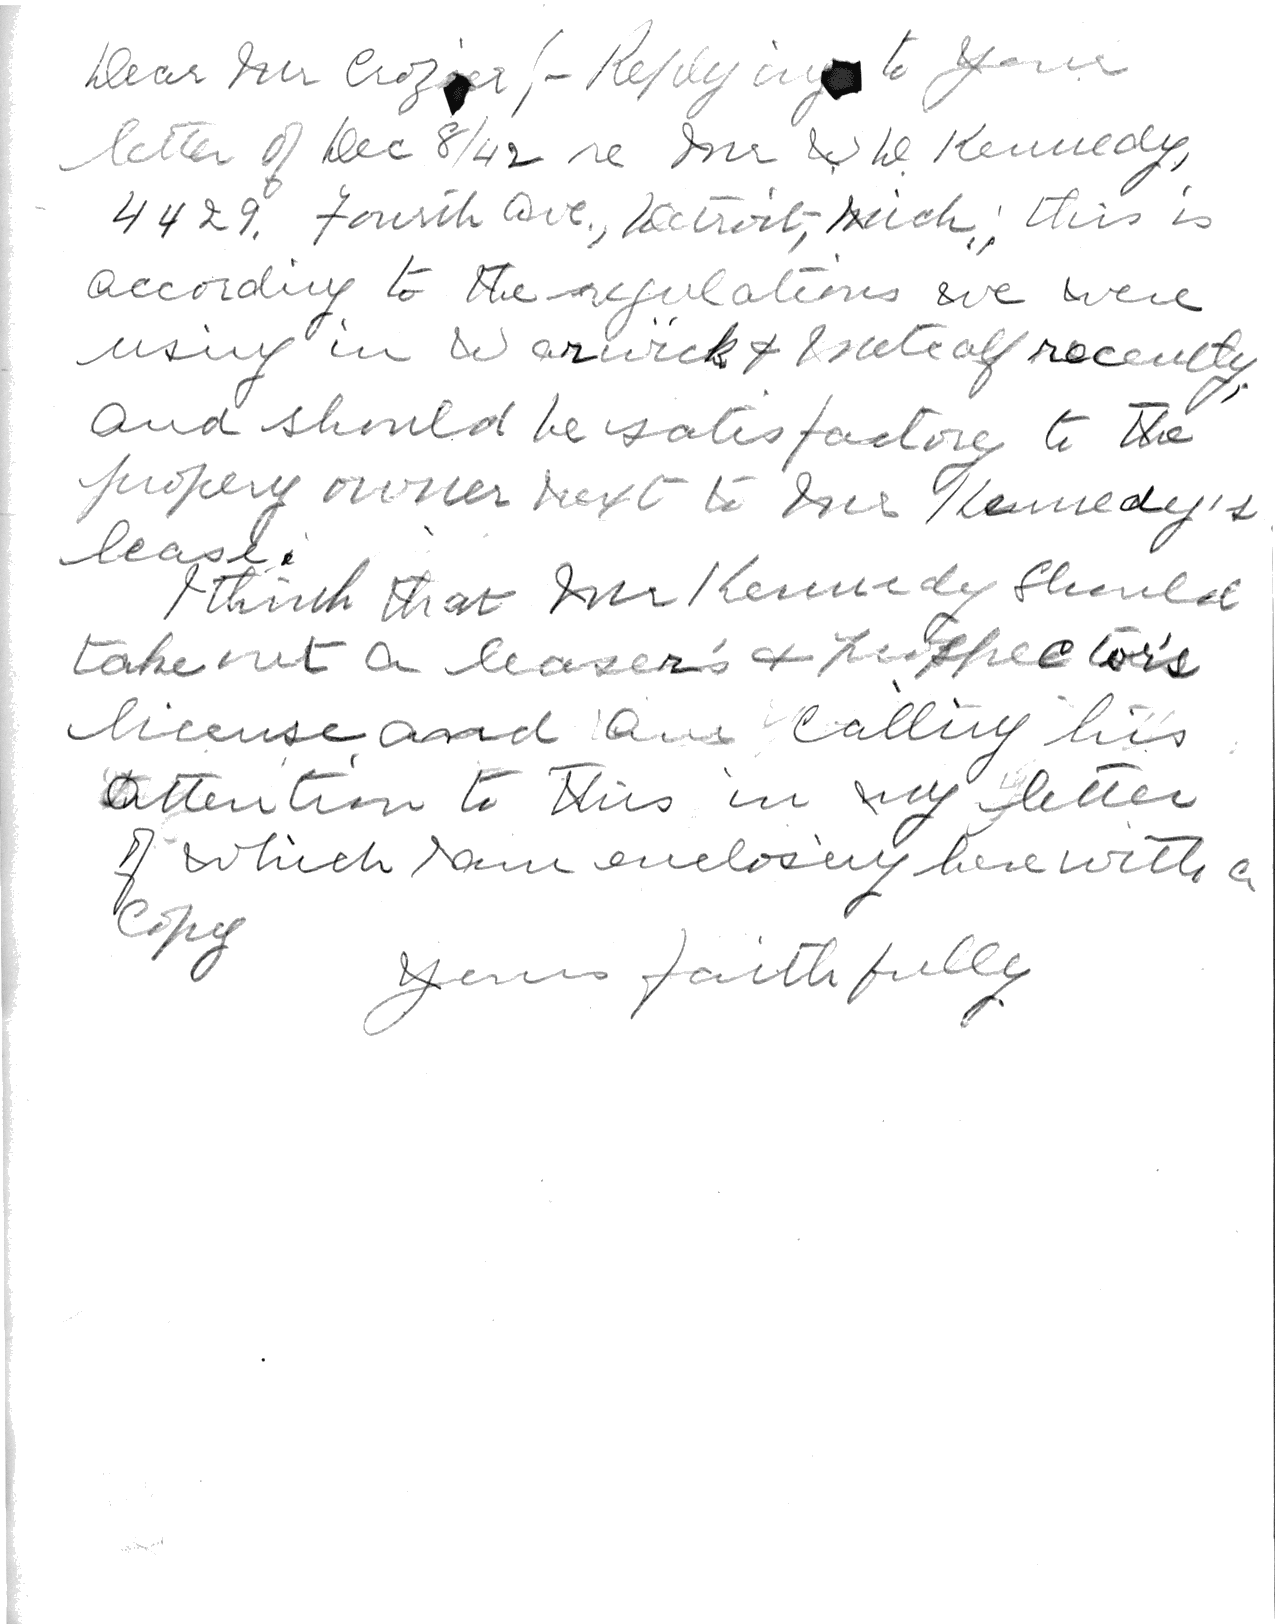 Dear Mr Crozier,- Replying to your
letter of Dec 8/42 re Mr W D. Kennedy,
4429. Fourth Ave., Detroit, Mich.; this is
according to the regulations we were
using in Warwick & Metcalf recently,
and should be satisfactory to the
propery owner next to Mr Kennedy's
lease.
I think that Mr Kennedy should
take out a leaser's & prospector's
license and am calling his
attention to this in my letter
of which I am enclosing herewith a
copy
Yours faithfully